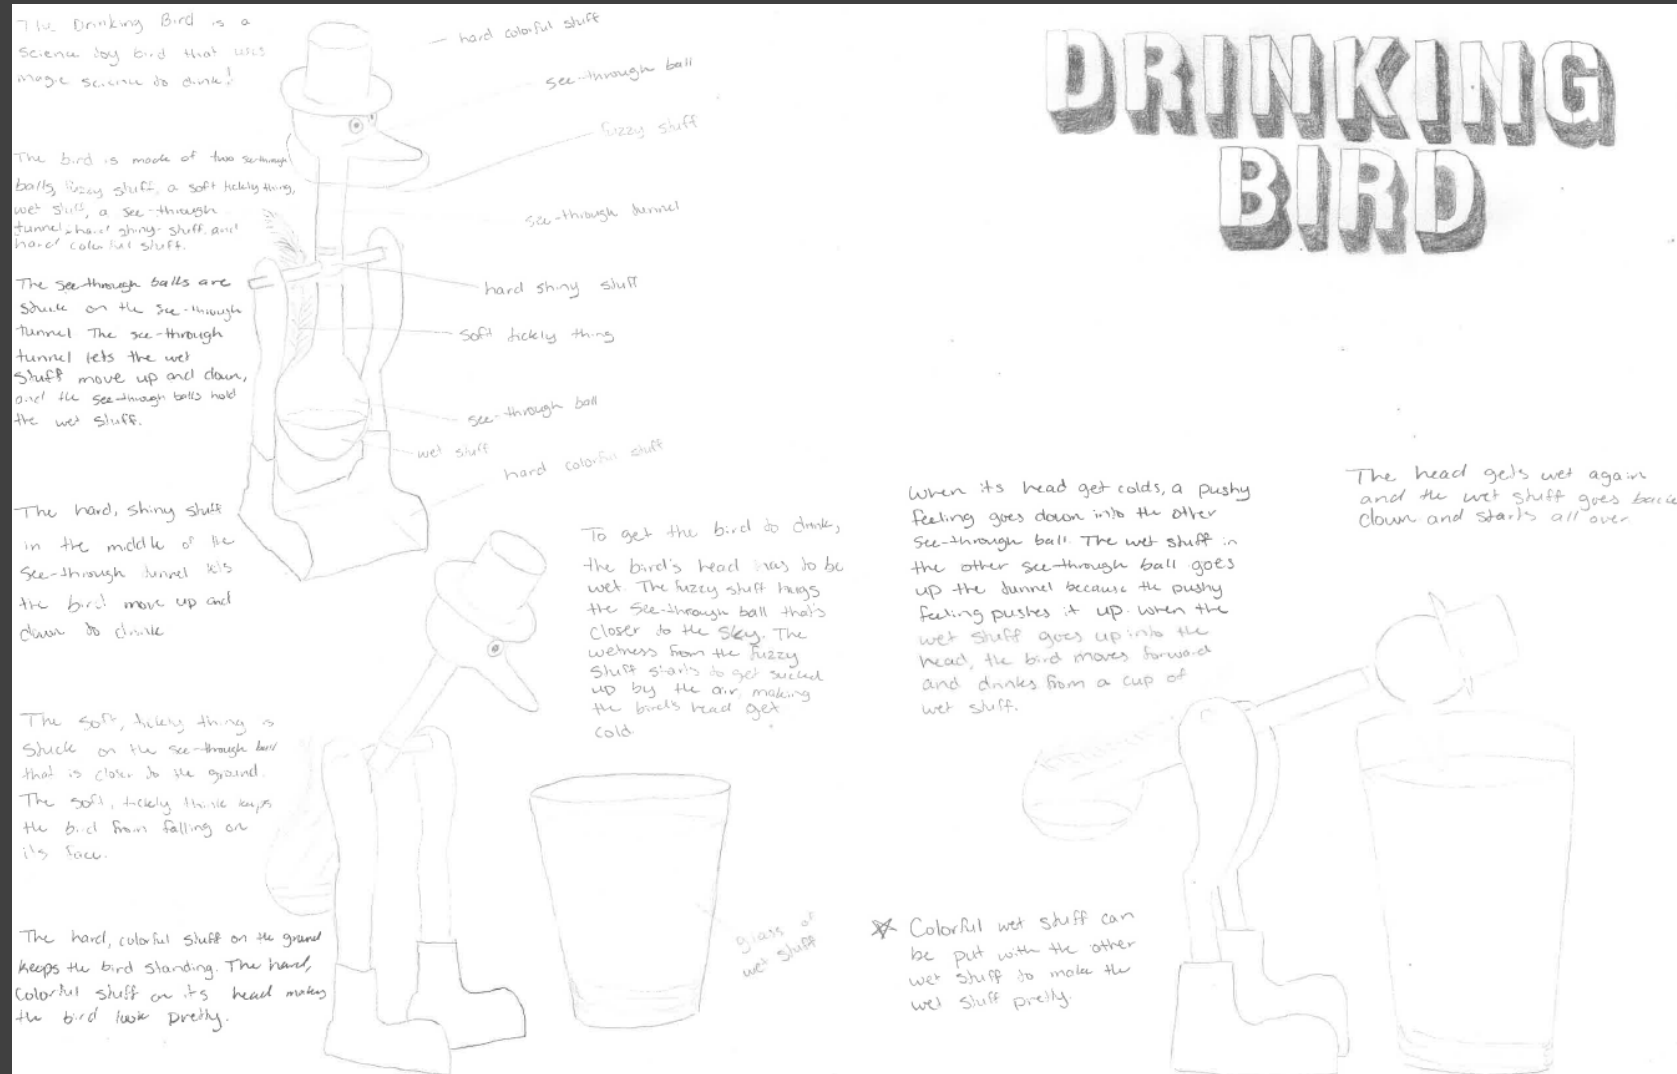 DRINKING
BIRD
The Drinking Bird is a
science toy bird that uses
magic science to drink!
The bird is made of two see-through
balls, fuzzy stuff, a soft tickly thing,
wet stuff, a see-through
tunnel, hard shiny stuff, and
hard colorful stuff.
The see-through balls are
stuck on the see-through
tunnel. The see-through
tunnel lets the wet
stuff move up and down,
and the see-through balls hold
the wet stuff.
The hard, shiny stuff
in the middle of the
see-through tunnel lets
the bird move up and
down to drink
The soft, tickly thing is
stuck on the see-through ball
that is closer to the ground.
The soft, tickly think keeps
the bird from falling on
it's face.
The hard, colorful stuff on the ground
keeps the bird standing. The hard,
colorful stuff on its head makes
the bird look pretty.
hard colorful stuff
see-through ball
fuzzy stuff
see-through tunnel
hard shiny stuff
soft tickly thing
see-through ball
wet stuff
hard colorful stuff
To get the bird to drink,
the bird's head has to be
wet. The fuzzy stuff hugs
the see-through ball that's
closer to the sky. The
wetness from the fuzzy
stuff starts to get sucked
up by the air, making
the bird's head get
cold.
glass of
wet stuff
When its head get colds, a pushy
feeling goes down into the other
see-through ball. The wet stuff in
the other see-through ball goes
up the tunnel because the pushy
feeling pushes it up. When the
wet stuff goes up into the
head, the bird moves forward
and drinks from a cup of
wet stuff.
The head gets wet again
and the wet stuff goes back
down and starts all over.
Colorful wet stuff can
be put with the other
wet stuff to make the
wet stuff pretty.